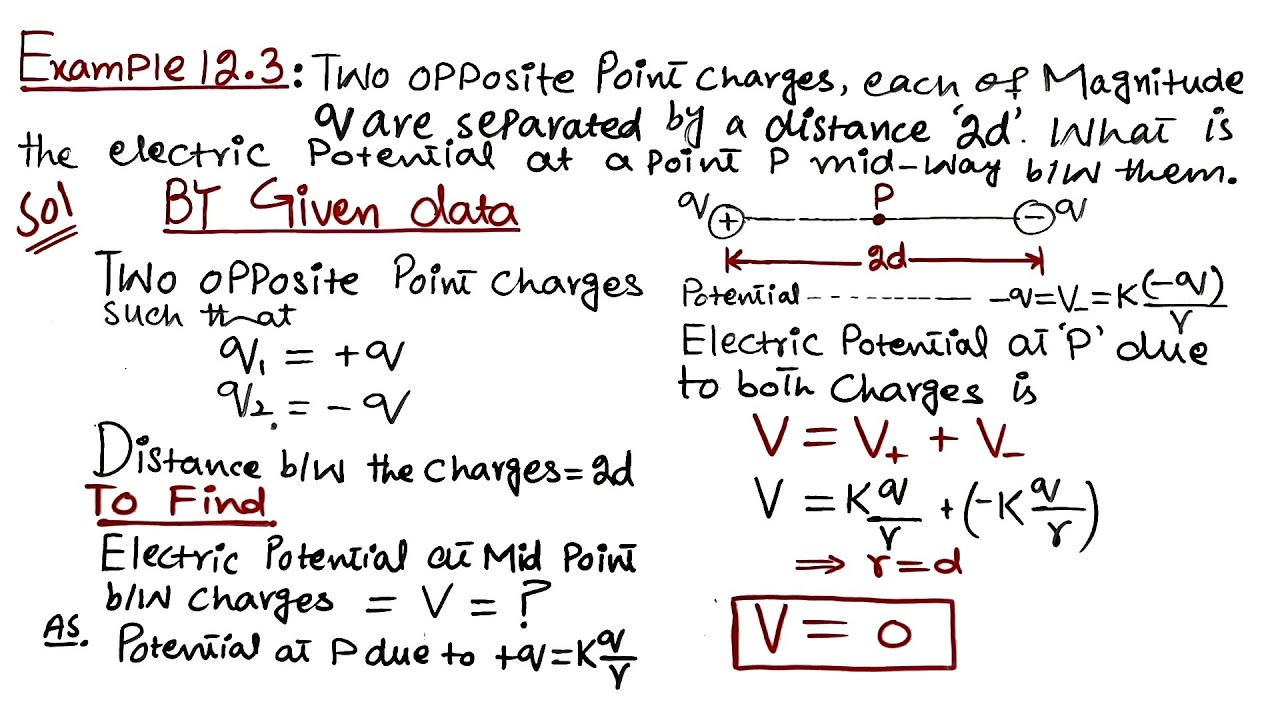 Example 12.3: Two opposite Point charges, each of Magnitude
q are separated by a distance '2d'. What is
the electric Potential at a point P mid-way b/w them.
Sol BY Given data
Two opposite Point charges
such that
q₁ = +q
q₂ = -q
Distance b/w the charges = 2d
To Find
Electric Potential at Mid Point
b/w charges = V = ?
As. Potential at P due to +q = K q/r
q + P - q
2d
Potential ------------ -q = V_ = K (-q)/r
Electric Potential at 'P' due
to both Charges is
V = V₊ + V_
V = K q/r + (-K q/r)
⇒ r = d
V = 0